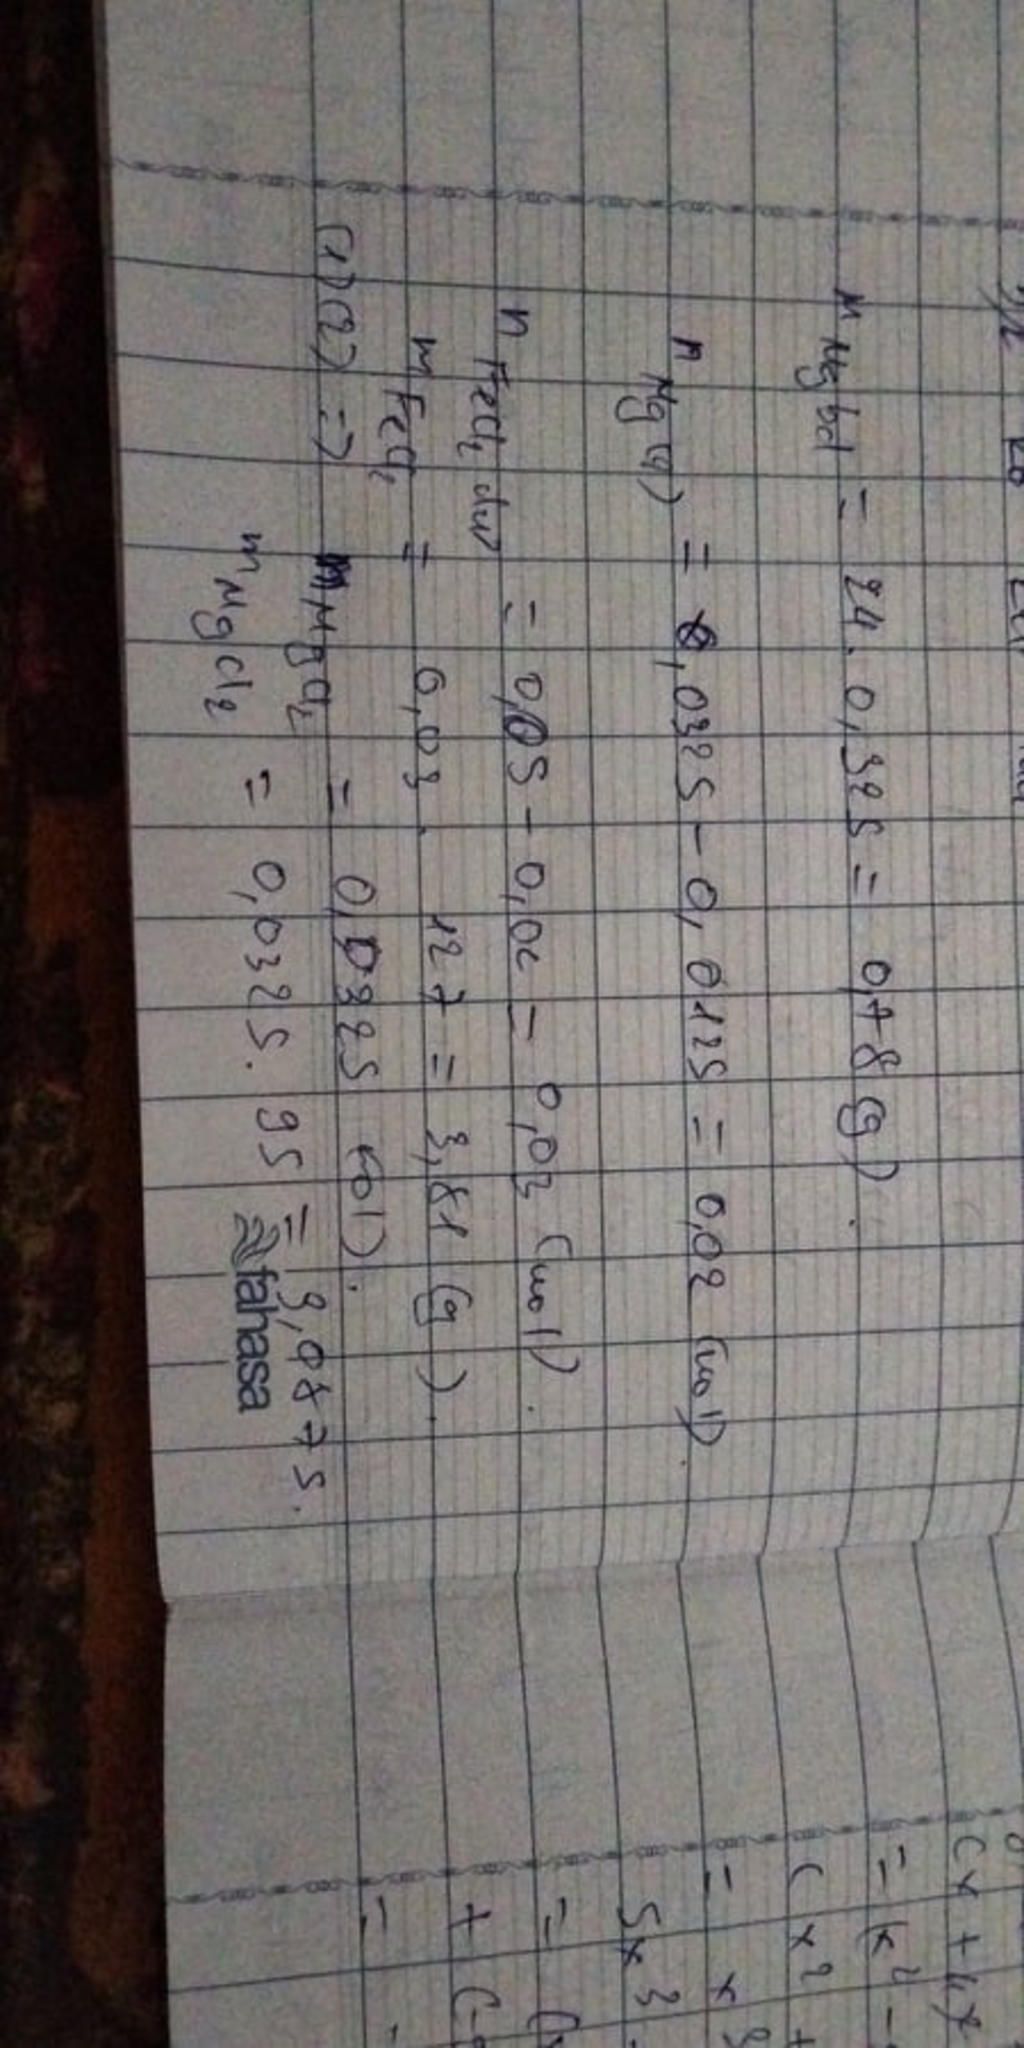 m Mg bđ = 24. 0,325 = 0,78 (g).
n Mg (4) = 0,0325 - 0,0125 = 0,02 (mol).
n FeCl2 dư = 0,05 - 0,02 = 0,03 (mol).
m FeCl2 = 0,03 . 127 = 3,81 (g).
(1)(2) => n MgCl2 = 0,0325 mol).
m MgCl2 = 0,0325. 95 = 3,0875.
fahasa
(x +
=
(x2 +
= x
5x3
=
+ (-
=